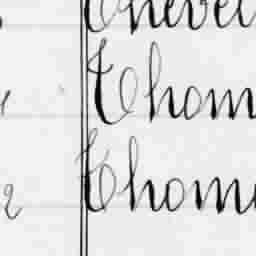 Thevel
Thom
2 Thom